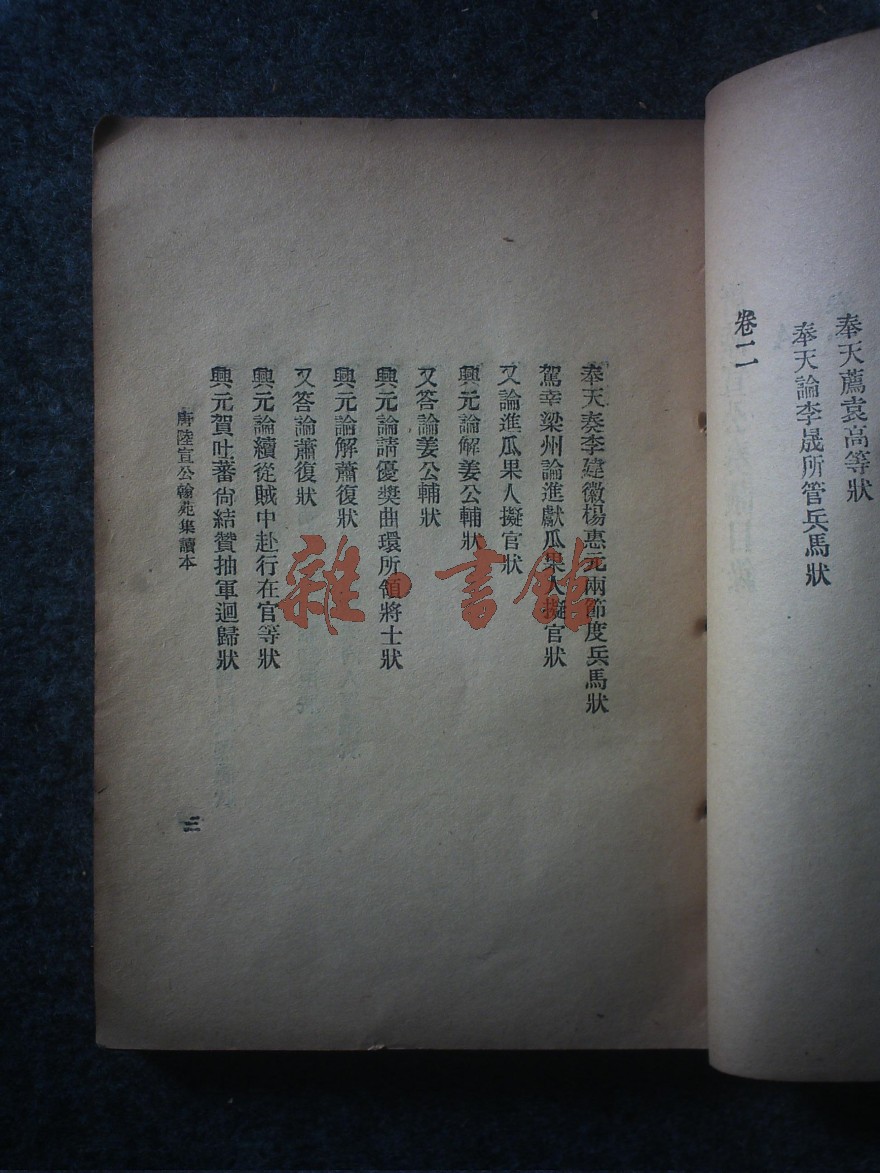 奉天薦袁高等狀
奉天論李晟所管兵馬狀
卷二
奉天奏李建徽楊惠元兩節度兵馬狀
駕幸梁州論進獻瓜果人擬官狀
又論進瓜果人擬官狀
興元論解姜公輔狀
又答論姜公輔狀
興元論請優奬曲環所領將士狀
興元論解蕭復狀
又答論蕭復狀
興元論續從賊中赴行在官等狀
興元賀吐蕃尙結贊抽軍迴歸狀
唐陸宣公翰苑集讀本
三
雜·書館